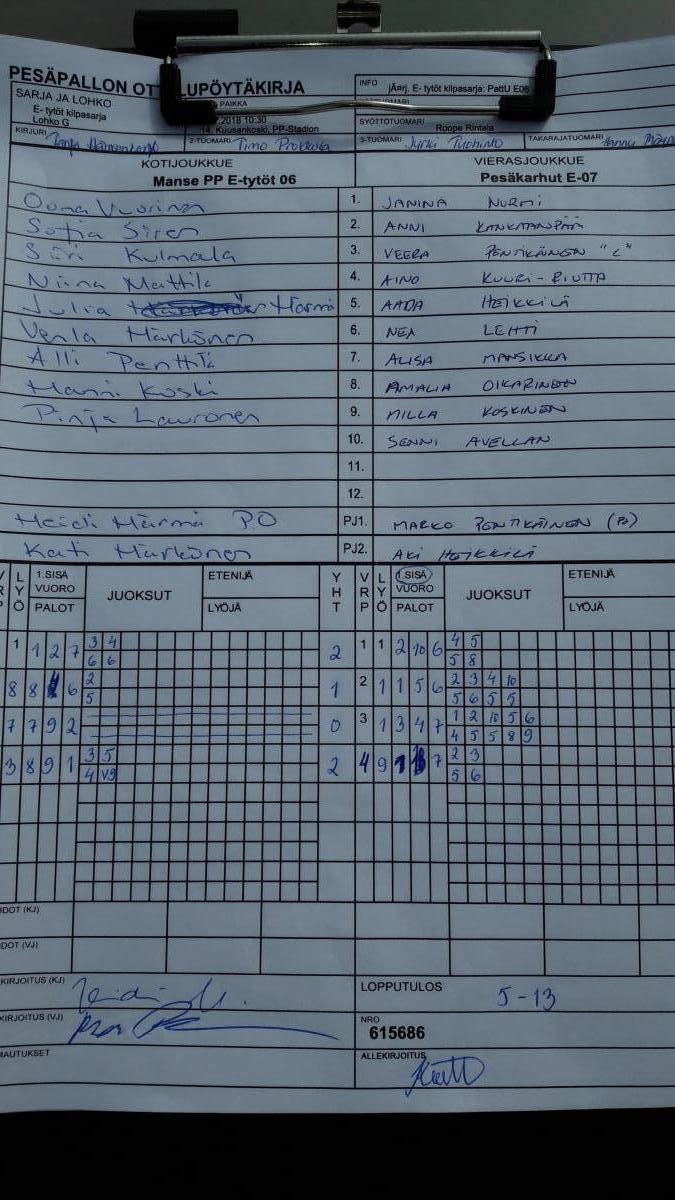 PESÄPALLON OT LUPÖYTÄKIRJA
INFO jÄ¤rj. E- tytöt kilpasarja: PattU E06
SARJA JA LOHKO
E- tytöt kilpasarja
Lohko G
PAIKKA
.2018 10:30
14. Kuusankoski, PP-Stadion
TUOMARI
SYÖTTÖTUOMARI
Roope Rintala
KIRJURI
2-TUOMARI Timo
3-TUOMARI Jyrki
TAKARAJATUOMARI Hannu
KOTIJOUKKUE
Manse PP E-tytöt 06
VIERASJOUKKUE
Pesäkarhut E-07
Oona Vuorinen 1. JANINA NURMI
Sofia Siren 2. ANNI KANKAANPÄÄ
Siiri Kulmala 3. VEERA PENTIKÄINEN "C"
Niina Mattila 4. AINO KUURI-RIUTTA
Julia Härmä 5. AADA HEIKKILÄ
Venla Härkönen 6. NEA LEHTI
Alli Penttilä 7. ALISA MANSIKKA
Hanni Koski 8. AMALIA OIKARINEN
Pinja Lauronen 9. MILLA KOSKINEN
10. SENNI AVELLAN
11.
12.
Heidi Härmä PO PJ1. MARKO PENTIKÄINEN (PO)
Kati Härkönen PJ2. AKI HEIKKILÄ
VRP LYÖ 1.SISÄ VUORO PALOT JUOKSUT ETENIJÄ LYÖJÄ YHT VRP LYÖ 1.SISÄ VUORO PALOT JUOKSUT ETENIJÄ LYÖJÄ
1 1 2 7 3 4 2 1 1 2 10 6 4 5
6 6 5 8
8 8 6 2 1 2 1 1 5 6 2 3 4 10
5 5 6 5 5
7 7 9 2 0 3 1 3 4 7 1 2 10 5 6
4 5 5 8 9
3 8 9 1 3 5 2 4 9 7 2 3
4 V9 5 6
DOT (KJ)
DOT (VJ)
KIRJOITUS (KJ)
LOPPUTULOS 5-13
KIRJOITUS (VJ)
NRO
615686
MAUTUKSET
ALLEKIRJOITUS